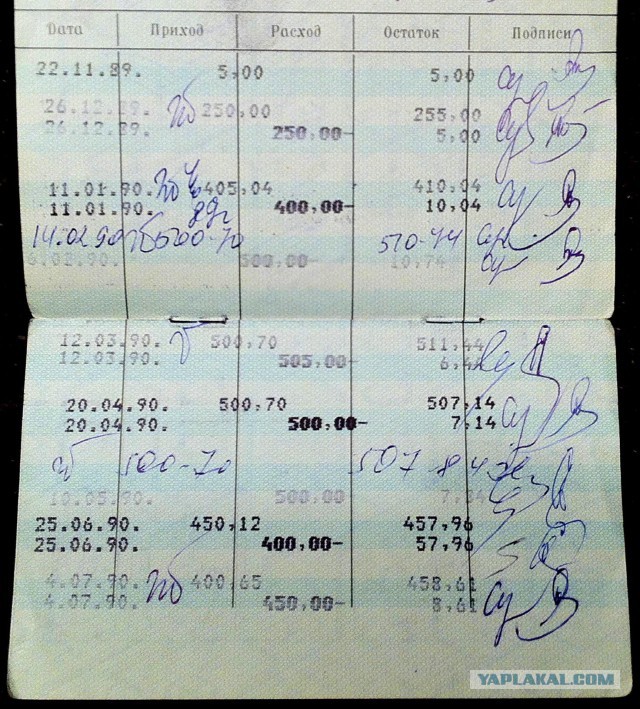 Дата Приход Расход Остаток Подписи
22.11.89. 5,00 5,00
26.12.89. 250,00 255,00
26.12.89. 250,00- 5,00
11.01.90. 405,04 410,04
11.01.90. 400,00- 10,04
14.02.90 500-70 510-74
6.02.90. 500,00- 10,74
12.03.90. 500,70 511,44
12.03.90. 505,00- 6,44
20.04.90. 500,70 507,14
20.04.90. 500,00- 7,14
500-70 507-84
10.05.90. 500,00- 7,84
25.06.90. 450,12 457,96
25.06.90. 400,00- 57,96
4.07.90. 400,65 458,61
4.07.90. 450,00- 8,61
YAPLAKAL.COM